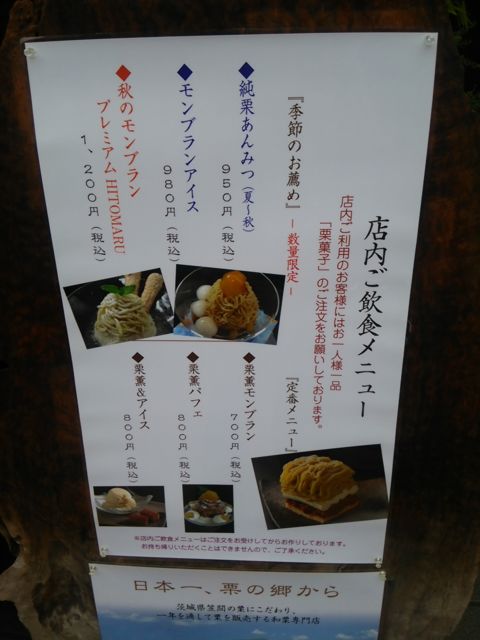 店内ご飲食メニュー
店内ご利用のお客様にはお一人様一品
「栗菓子」のご注文をお願いしております。
『季節のお薦め』－数量限定－
◆純栗あんみつ(夏～秋)
950円(税込)
◆モンブランアイス
980円(税込)
◆秋のモンブラン
プレミアム HITOMARU
1、200円(税込)
『定番メニュー』
◆栗薫モンブラン
700円(税込)
◆栗薫パフェ
800円(税込)
◆栗薫&アイス
800円(税込)
※店内ご飲食メニューはご注文をお受けしてからお作りしております。
お持ち帰りいただくことはできませんので、ご了承ください。
日本一、栗の郷から
茨城県笠間の栗にこだわり、
一年を通して栗を販売する和栗専門店